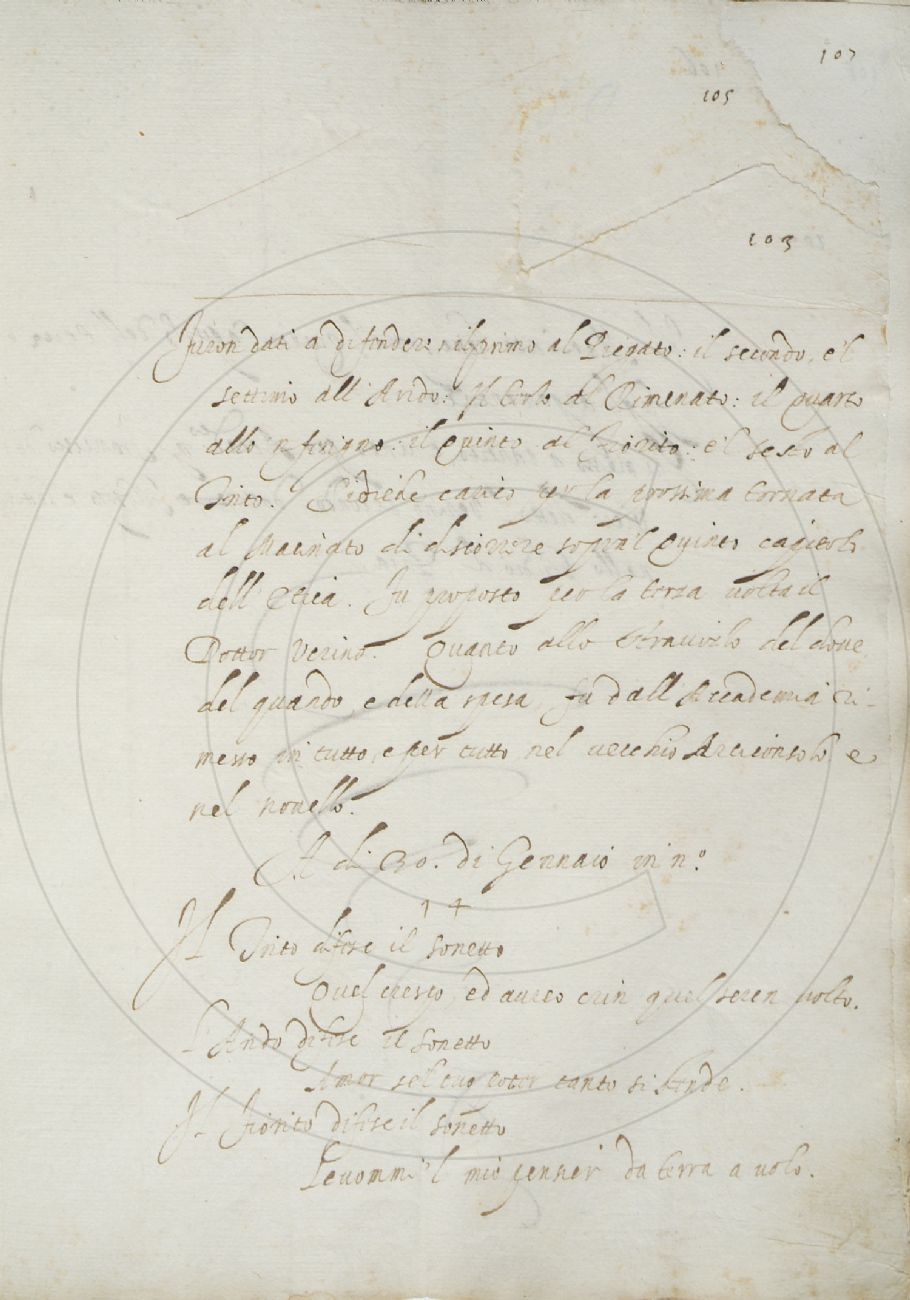 107
105
103
Furon dati a difendere: il primo al Pregato: il secondo, e'l
settimo all'Arido: Il terzo al Rimenato: il quarto
allo 'nferigno: il quinto al Fiorito: e'l sesto al
Trito. Si diede carico per la prossima tornata
al Macinato di discorrere sopra'l quinto capitolo
dell'Etica. Fu proposto per la terza volta il
Dottor Verino. Quanto allo Stravizzo del dove,
del quando, e della spesa, fu dall'Accademia ri-
messo in tutto, e per tutto nel vecchio Arciconsolo, e
nel novello.
A di 30. di Gennaio in n.º
14
Il Trito difese il sonetto
Quel crespo, ed aureo crin quel seren volto.
L'Arido difese il sonetto
Amor se'l tuo poter tanto si stende.
Il Fiorito difese il sonetto
Levommi'l mio pensier da terra a volo.